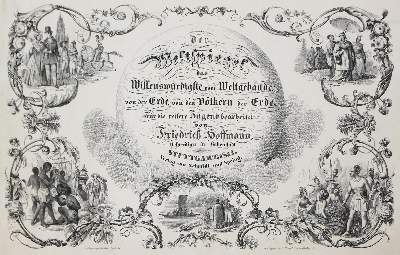 Der
Weltspiegel
das
Wissenswürdigste vom Weltgebäude
von der Erde, von den Völkern der Erde.
Für die reifere Jugend bearbeitet
von
Friedrich Hoffmann,
STUTTGART
Verlag von Schmidt und Spring.